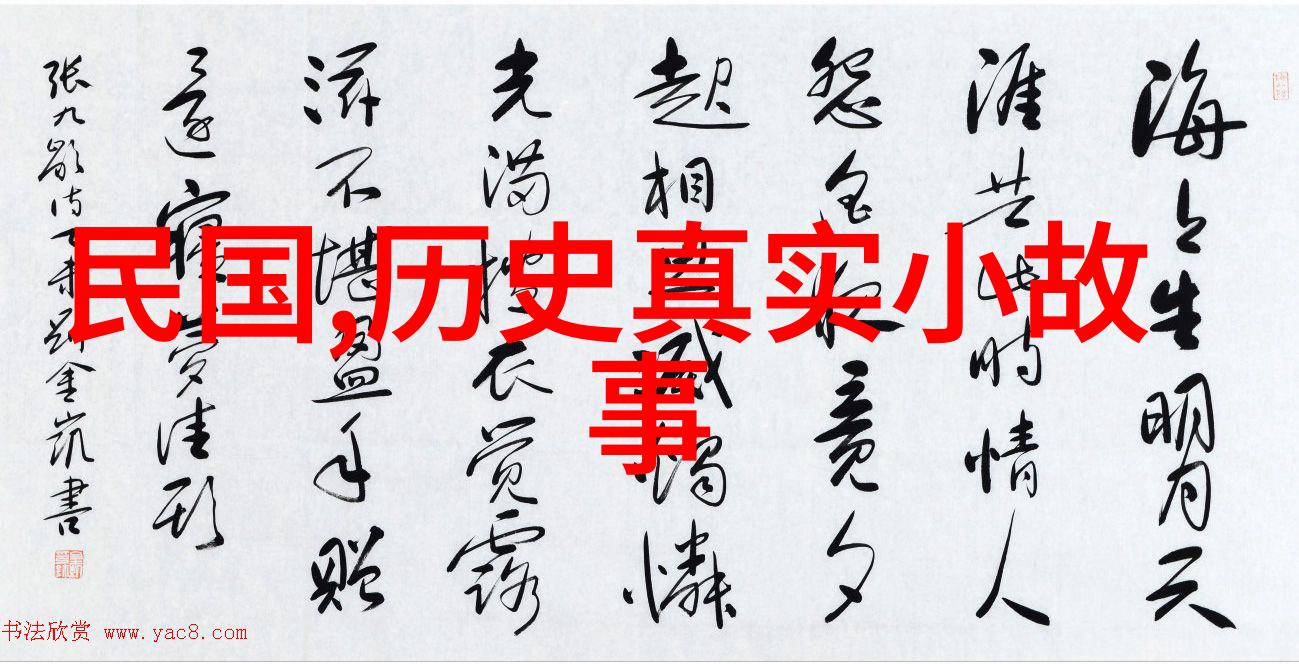 民国,历史真实小故
事
海上生明月天
涯共此时情人
怨遥夜竟夕
起相思滅燭憐
光满披衣觉露
滋不堪盈手赠
还寝梦佳期
张九龄诗 金凯書
书法欣赏 www.yac8.com